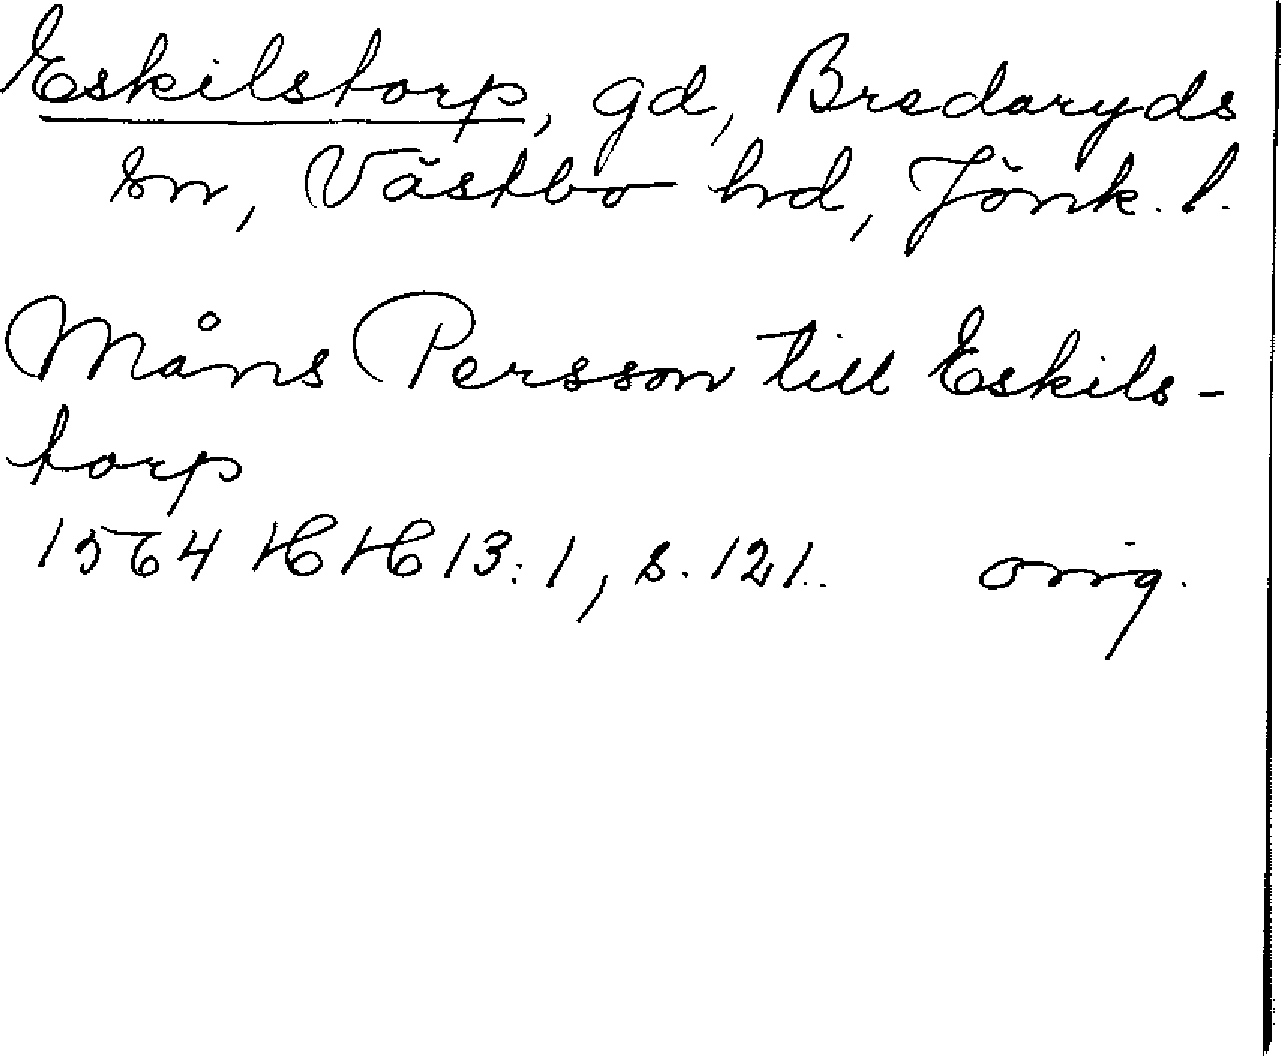 Eskilstorp, gd, Bredaryds
sn, Västbo hd, Jönk. l.
Måns Persson till Eskils-
torp
1564 HH 13:1, s. 121. orig.